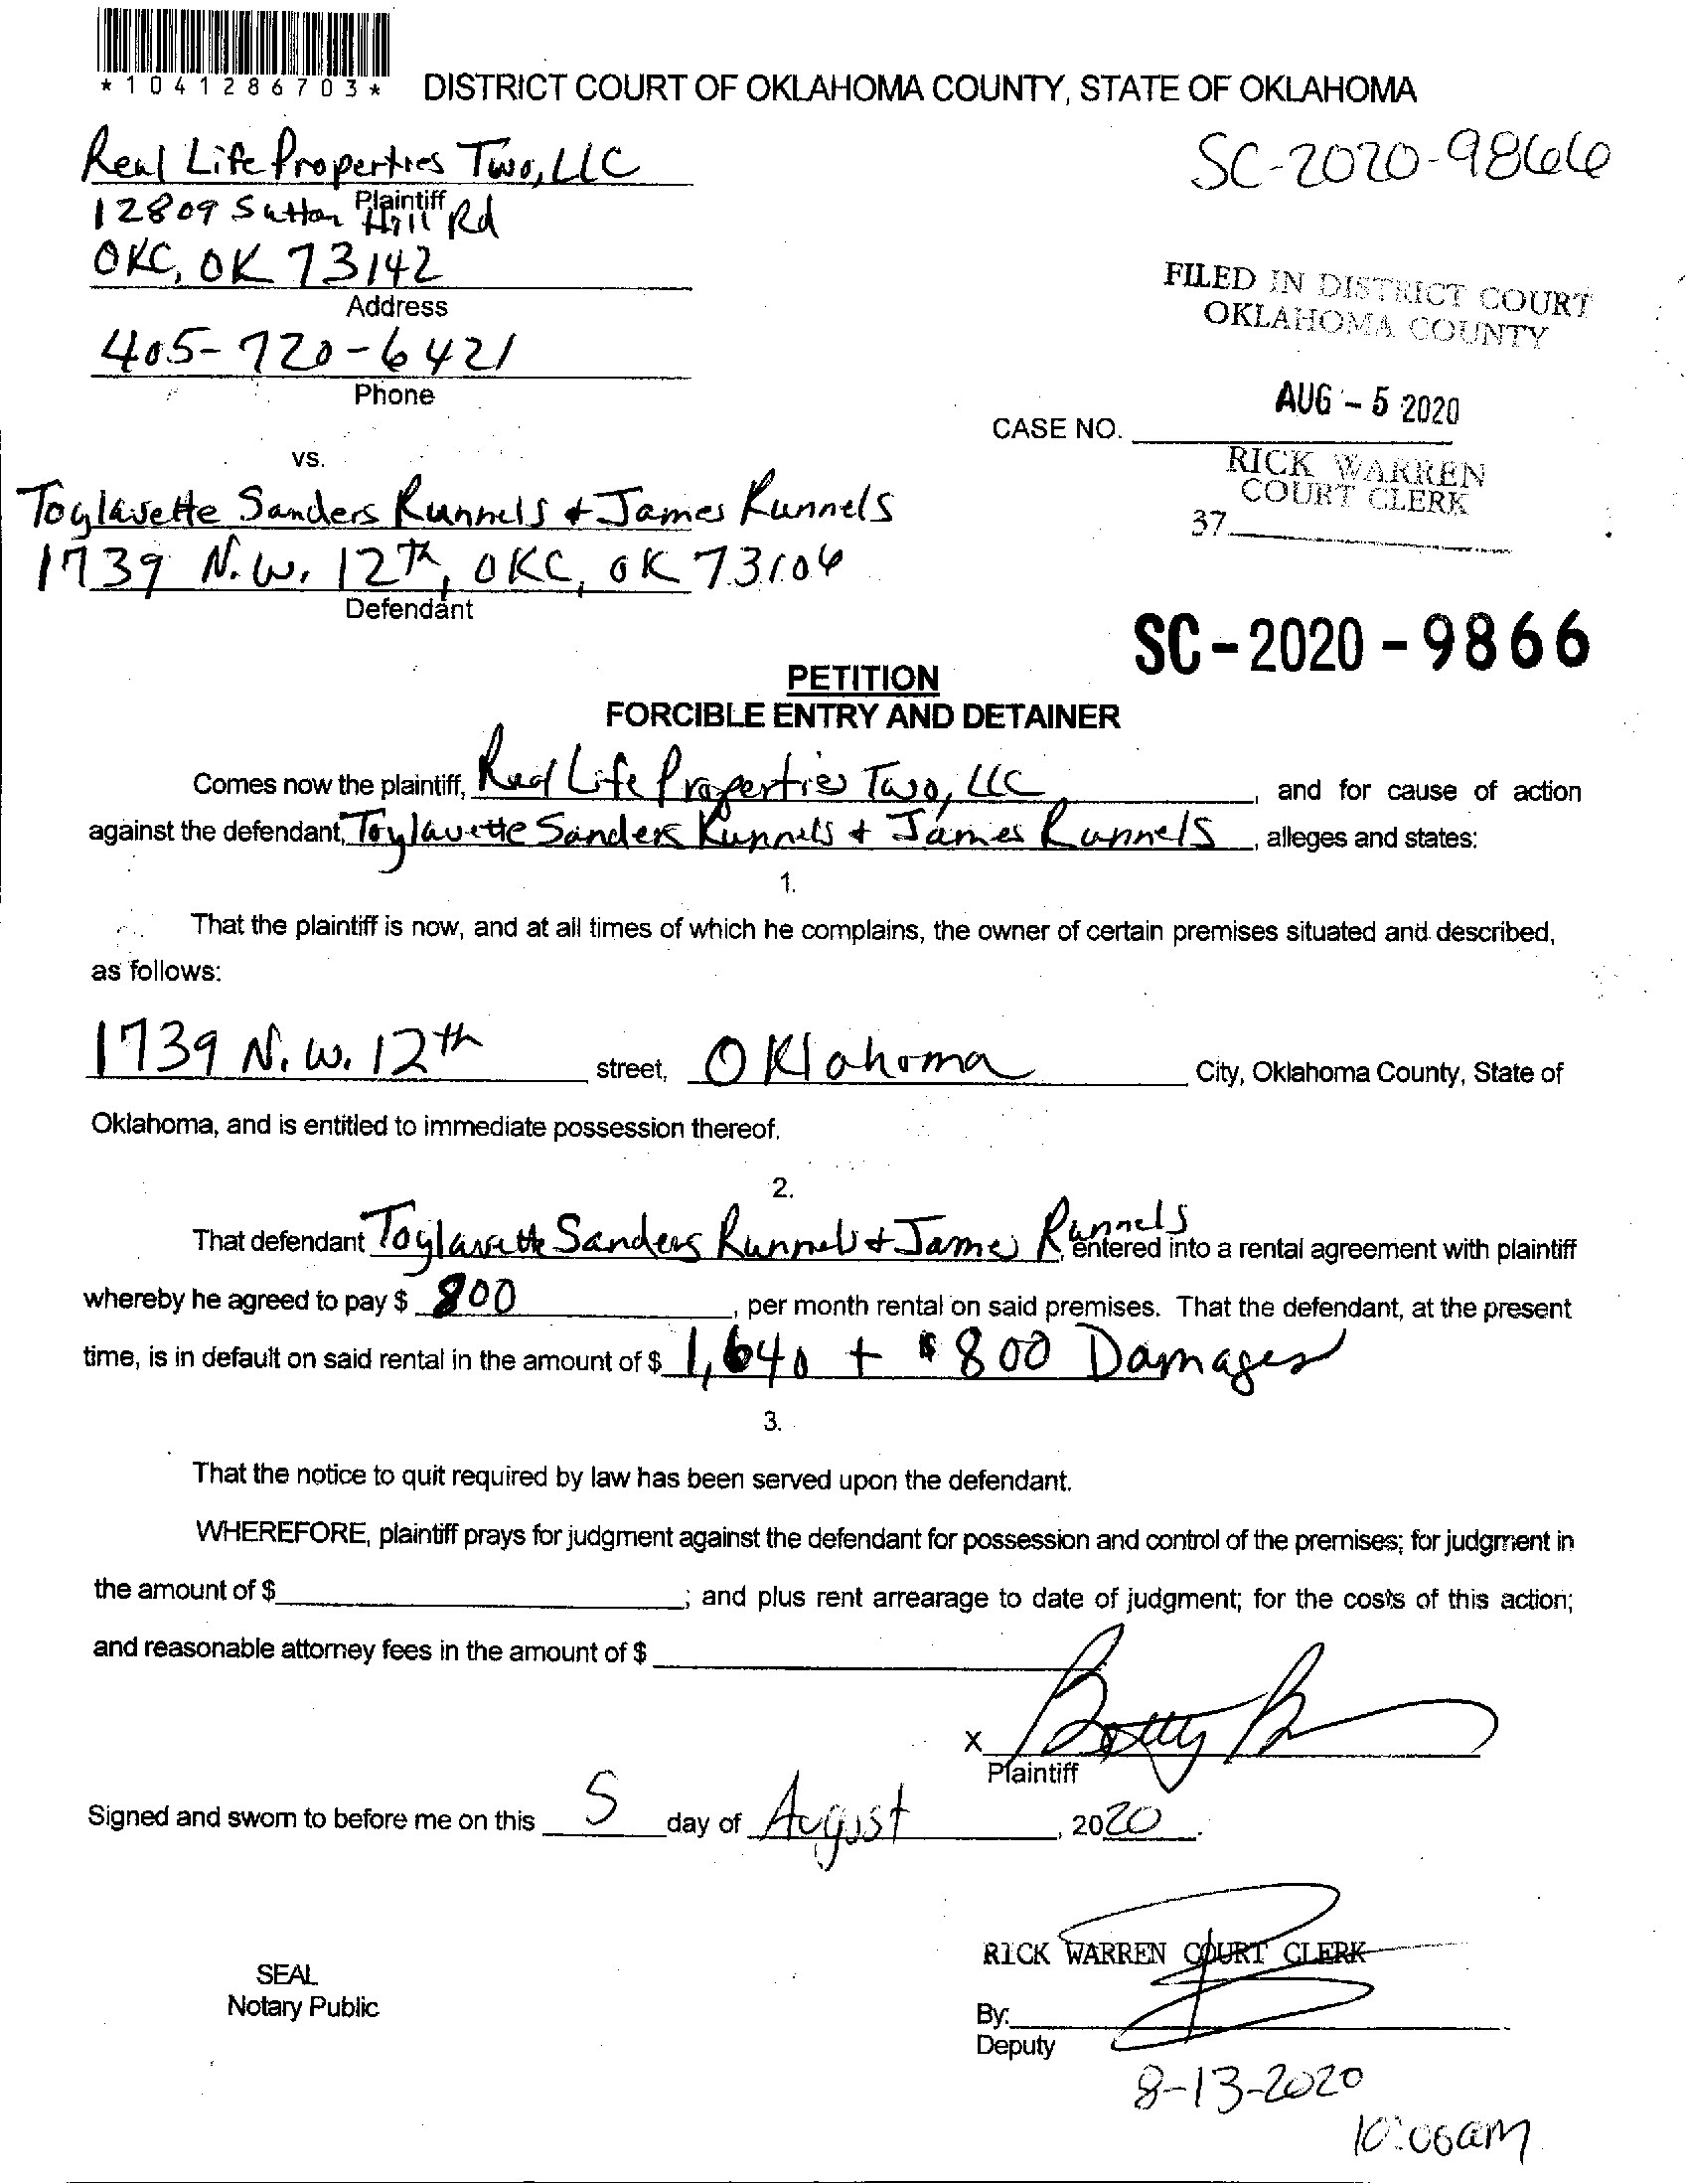 *1041286703*
DISTRICT COURT OF OKLAHOMA COUNTY, STATE OF OKLAHOMA
Real Life Properties Two, LLC
SC-2020-9866
Plaintiff
12809 Sutton Hill Rd
OKC, OK 73142
Address
FILED IN DISTRICT COURT
OKLAHOMA COUNTY
405-720-6421
Phone
AUG - 5 2020
CASE NO.
RICK WARREN
COURT CLERK
37
vs.
Toylavette Sanders Runnels + James Runnels
1739 N.W. 12th, OKC, OK 73106
Defendant
SC-2020-9866
PETITION
FORCIBLE ENTRY AND DETAINER
Comes now the plaintiff, Real Life Properties Two, LLC, and for cause of action
against the defendant, Toylavette Sanders Runnels + James Runnels, alleges and states:
1.
That the plaintiff is now, and at all times of which he complains, the owner of certain premises situated and described,
as follows:
1739 N.W. 12th street, Oklahoma City, Oklahoma County, State of
Oklahoma, and is entitled to immediate possession thereof.
2.
That defendant Toylavette Sanders Runnels + James Runnels, entered into a rental agreement with plaintiff
whereby he agreed to pay $ 800, per month rental on said premises. That the defendant, at the present
time, is in default on said rental in the amount of $ 1,640 + $800 Damages
3.
That the notice to quit required by law has been served upon the defendant.
WHEREFORE, plaintiff prays for judgment against the defendant for possession and control of the premises; for judgment in
the amount of $ ; and plus rent arrearage to date of judgment; for the costs of this action;
and reasonable attorney fees in the amount of $
X
Plaintiff
Signed and sworn to before me on this 5 day of August, 2020.
RICK WARREN COURT CLERK
SEAL
Notary Public
By:
Deputy
8-13-2020
10:06am